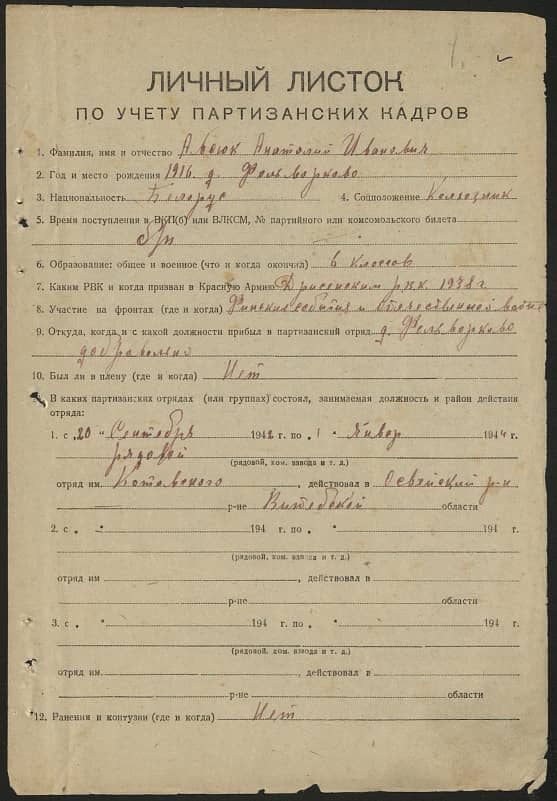 1.
ЛИЧНЫЙ ЛИСТОК
ПО УЧЕТУ ПАРТИЗАНСКИХ КАДРОВ
1. Фамилия, имя и отчество Авсюк Анатолий Иванович
2. Год и место рождения 1916 д. Фольварково
3. Национальность Белорус 4. Соцположение Колхозник
5. Время поступления в ВКП(б) или ВЛКСМ, № партийного или комсомольского билета
б/п
6. Образование: общее и военное (что и когда окончил) 6 классов
7. Каким РВК и когда призван в Красную Армию Дрисенским рвк 1938 г
8. Участие на фронтах (где и когда) Финских события и Отечественной войне
9. Откуда, когда и с какой должности прибыл в партизанский отряд д. Фольварково
добравольно
10. Был ли в плену (где и когда) Нет
В каких партизанских отрядах (или группах) состоял, занимаемая должность и район действия
отряда:
1. с „20 " Сентябрь 1942 г. по „1 " Январ 1944 г.
рядовой
(рядовой, ком. взвода и т. д.)
отряд им. Котовского, действовал в Освейский р-н
р-не Витебской области
2. с „ " 194 г. по „ " 194 г.
(рядовой, ком. взвода и т. д.)
отряд им , действовал в
р-не области
3. с „ " 194 г. по „ " 194 г.
(рядовой, дом. взвода и т. д.)
отряд им. , действовал в
р-не области
12. Ранения и контузии (где и когда) Нет